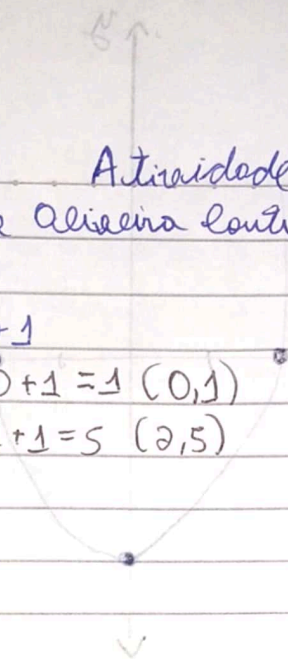 Atividade
e Oliveira Couti
+1
0+1=1 (0,1)
+1=5 (2,5)